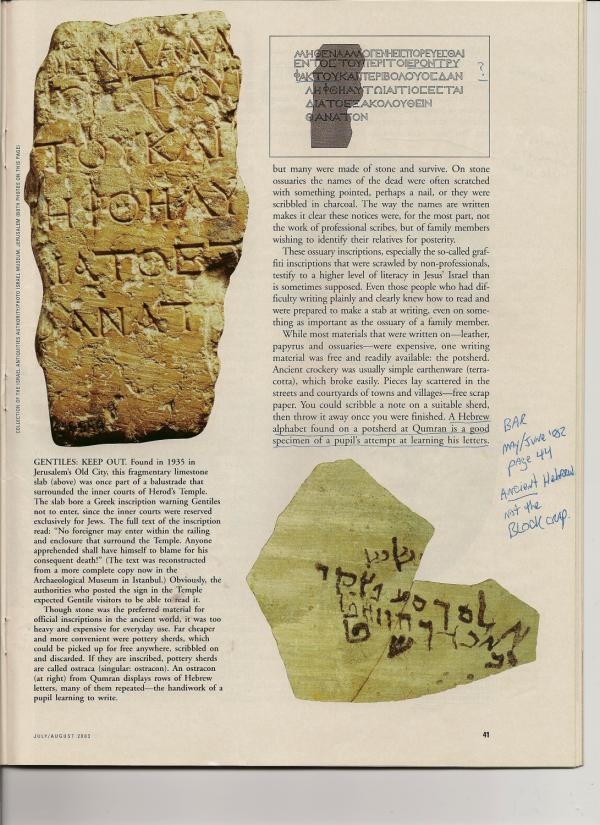 COLLECTION OF THE ISRAEL ANTIQUITIES AUTHORITY/PHOTO ISRAEL MUSEUM, JERUSALEM (BOTH PHOTOS ON THIS PAGE)
ΤΟΥ
ΤΟΥΚΑΙ
ΗΦΘΗΑΥ
ΙΑΤΟΕ
ΑΝΑΤ
GENTILES: KEEP OUT. Found in 1935 in
Jerusalem's Old City, this fragmentary limestone
slab (above) was once part of a balustrade that
surrounded the inner courts of Herod's Temple.
The slab bore a Greek inscription warning Gentiles
not to enter, since the inner courts were reserved
exclusively for Jews. The full text of the inscription
read: “No foreigner may enter within the railing
and enclosure that surround the Temple. Anyone
apprehended shall have himself to blame for his
consequent death!” (The text was reconstructed
from a more complete copy now in the
Archaeological Museum in Istanbul.) Obviously, the
authorities who posted the sign in the Temple
expected Gentile visitors to be able to read it.
Though stone was the preferred material for
official inscriptions in the ancient world, it was too
heavy and expensive for everyday use. Far cheaper
and more convenient were pottery sherds, which
could be picked up for free anywhere, scribbled on
and discarded. If they are inscribed, pottery sherds
are called ostraca (singular: ostracon). An ostracon
(at right) from Qumran displays rows of Hebrew
letters, many of them repeated—the handiwork of a
pupil learning to write.
ΜΗΘΕΝΑΑΛΛΟΓΕΝΗΕΙΣΠΟΡΕΥΕΣΘΑΙ
ΕΝΤΟΣΤΟΥΠΕΡΙΤΟΙΕΡΟΝΤΡΥ
ΦΑΚΤΟΥΚΑΙΠΕΡΙΒΟΛΟΥΟΣΔΑΝ
ΛΗΦΘΗΑΥΤΩΙΑΙΤΙΟΣΕΣΤΑΙ
ΔΙΑΤΟΕΞΑΚΟΛΟΥΘΕΙΝ
ΘΑΝΑΤΟΝ
?
but many were made of stone and survive. On stone
ossuaries the names of the dead were often scratched
with something pointed, perhaps a nail, or they were
scribbled in charcoal. The way the names are written
makes it clear these notices were, for the most part, not
the work of professional scribes, but of family members
wishing to identify their relatives for posterity.
These ossuary inscriptions, especially the so-called graf-
fiti inscriptions that were scrawled by non-professionals,
testify to a higher level of literacy in Jesus' Israel than
is sometimes supposed. Even those people who had dif-
ficulty writing plainly and clearly knew how to read and
were prepared to make a stab at writing, even on some-
thing as important as the ossuary of a family member.
While most materials that were written on—leather,
papyrus and ossuaries—were expensive, one writing
material was free and readily available: the potsherd.
Ancient crockery was usually simple earthenware (terra-
cotta), which broke easily. Pieces lay scattered in the
streets and courtyards of towns and villages—free scrap
paper. You could scribble a note on a suitable sherd,
then throw it away once you were finished. A Hebrew
alphabet found on a potsherd at Qumran is a good
specimen of a pupil's attempt at learning his letters.
BAR
MAY/JUNE '82
page 44
ANCIENT Hebrew
not the
BLOCK CRAP.
JULY/AUGUST 2003
41